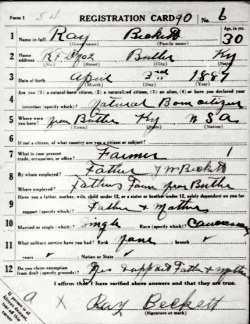 Form 1
REGISTRATION CARD No. 6
1 Name in full Ray Beckett Age, in yrs. 30
(Given name) (Family name)
2 Home address Butler Ky
(No.) (Street) (City) (State)
3 Date of birth April 3rd 1887
(Month) (Day) (Year)
4 Are you (1) a natural-born citizen, (2) a naturalized citizen, (3) an alien, (4) or have you declared your intention (specify which)? Natural Born citizen
5 Where were you born? Butler Ky U S A
(Town) (State) (Nation)
6 If not a citizen, of what country are you a citizen or subject?
7 What is your present trade, occupation, or office? Farmer
8 By whom employed? Father
Where employed? Fathers Farm Butler
9 Have you a father, mother, wife, child under 12, or a sister or brother under 12, solely dependent on you for support (specify which)? Father & Mother
10 Married or single (which)? Single Race (specify which)? Caucasian
11 What military service have you had? Rank none branch
years Nation or State
12 Do you claim exemption from draft (specify grounds)? Yes support Father & mother
I affirm that I have verified above answers and that they are true.
Ray Beckett